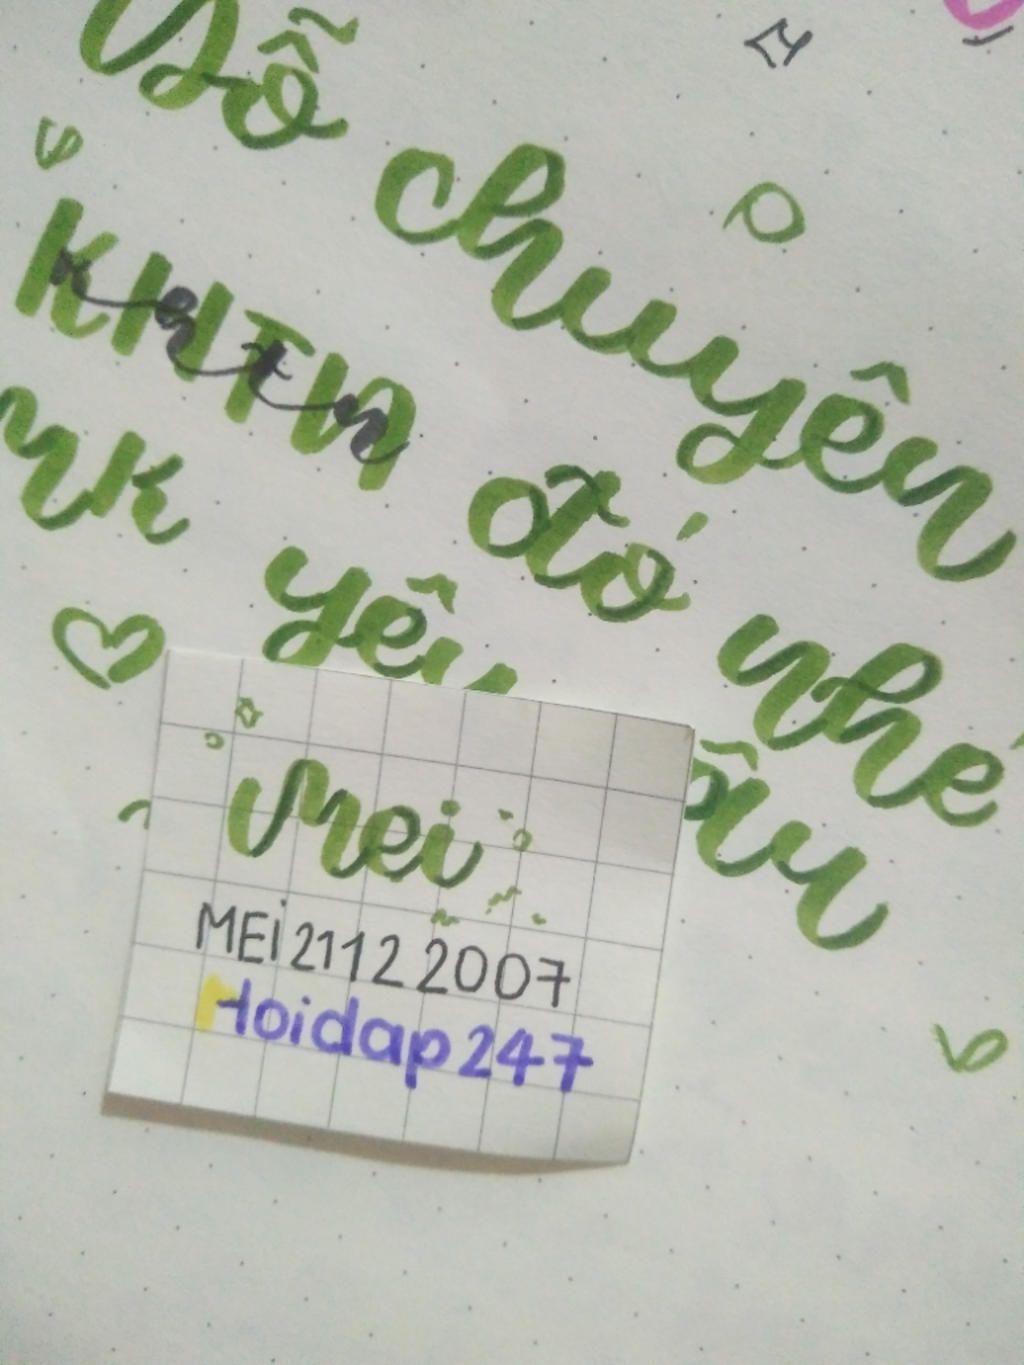 đỗ chuyên
KHTN đó nhé
khtn
mk yêu
Mei
MEi21122007
Hoidap247